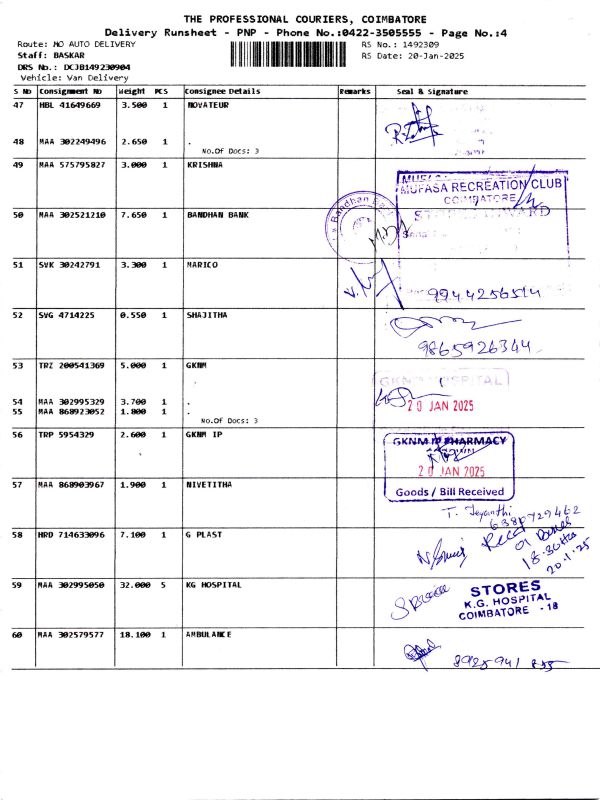 THE PROFESSIONAL COURIERS, COIMBATORE
Delivery Runsheet - PNP - Phone No.:0422-3505555 - Page No.:4
Route: MO AUTO DELIVERY RS No.: 1492309
Staff: BASKAR RS Date: 20-Jan-2025
DRS No.: DCJB149230904
Vehicle: Van Delivery
S No Consignment No Weight PCS Consignee Details Remarks Seal & Signature
47 HBL 41649669 3.500 1 NOVATEUR
48 MAA 302249496 2.650 1 .
No.Of Docs: 3
49 MAA 575795827 3.000 1 KRISHNA
MUFASA RECREATION CLUB
COIMBATORE
50 MAA 302521210 7.650 1 BANDHAN BANK
Bandhan
51 SVK 30242791 3.300 1 MARICO
9944256514
52 SVG 4714225 0.550 1 SHAJITHA
9865926344
53 TRZ 200541369 5.000 1 GKNM
.
GKNM HOSPITAL
54 MAA 302995329 3.700 1 .
20 JAN 2025
55 MAA 868923052 1.800 1 .
No.Of Docs: 3
56 TRP 5954329 2.600 1 GKNM IP
GKNM IP PHARMACY
20 JAN 2025
57 MAA 868903967 1.900 1 NIVETITHA
Goods / Bill Received
T. Jeyanthi
6380729462
58 HRD 714633096 7.100 1 G PLAST
Recd
01 Boxes
18.30Hrs
20.1.25
59 MAA 302995050 32.000 5 KG HOSPITAL
STORES
K.G. HOSPITAL
COIMBATORE - 18
60 MAA 302579577 18.100 1 AMBULANCE
8925941 855